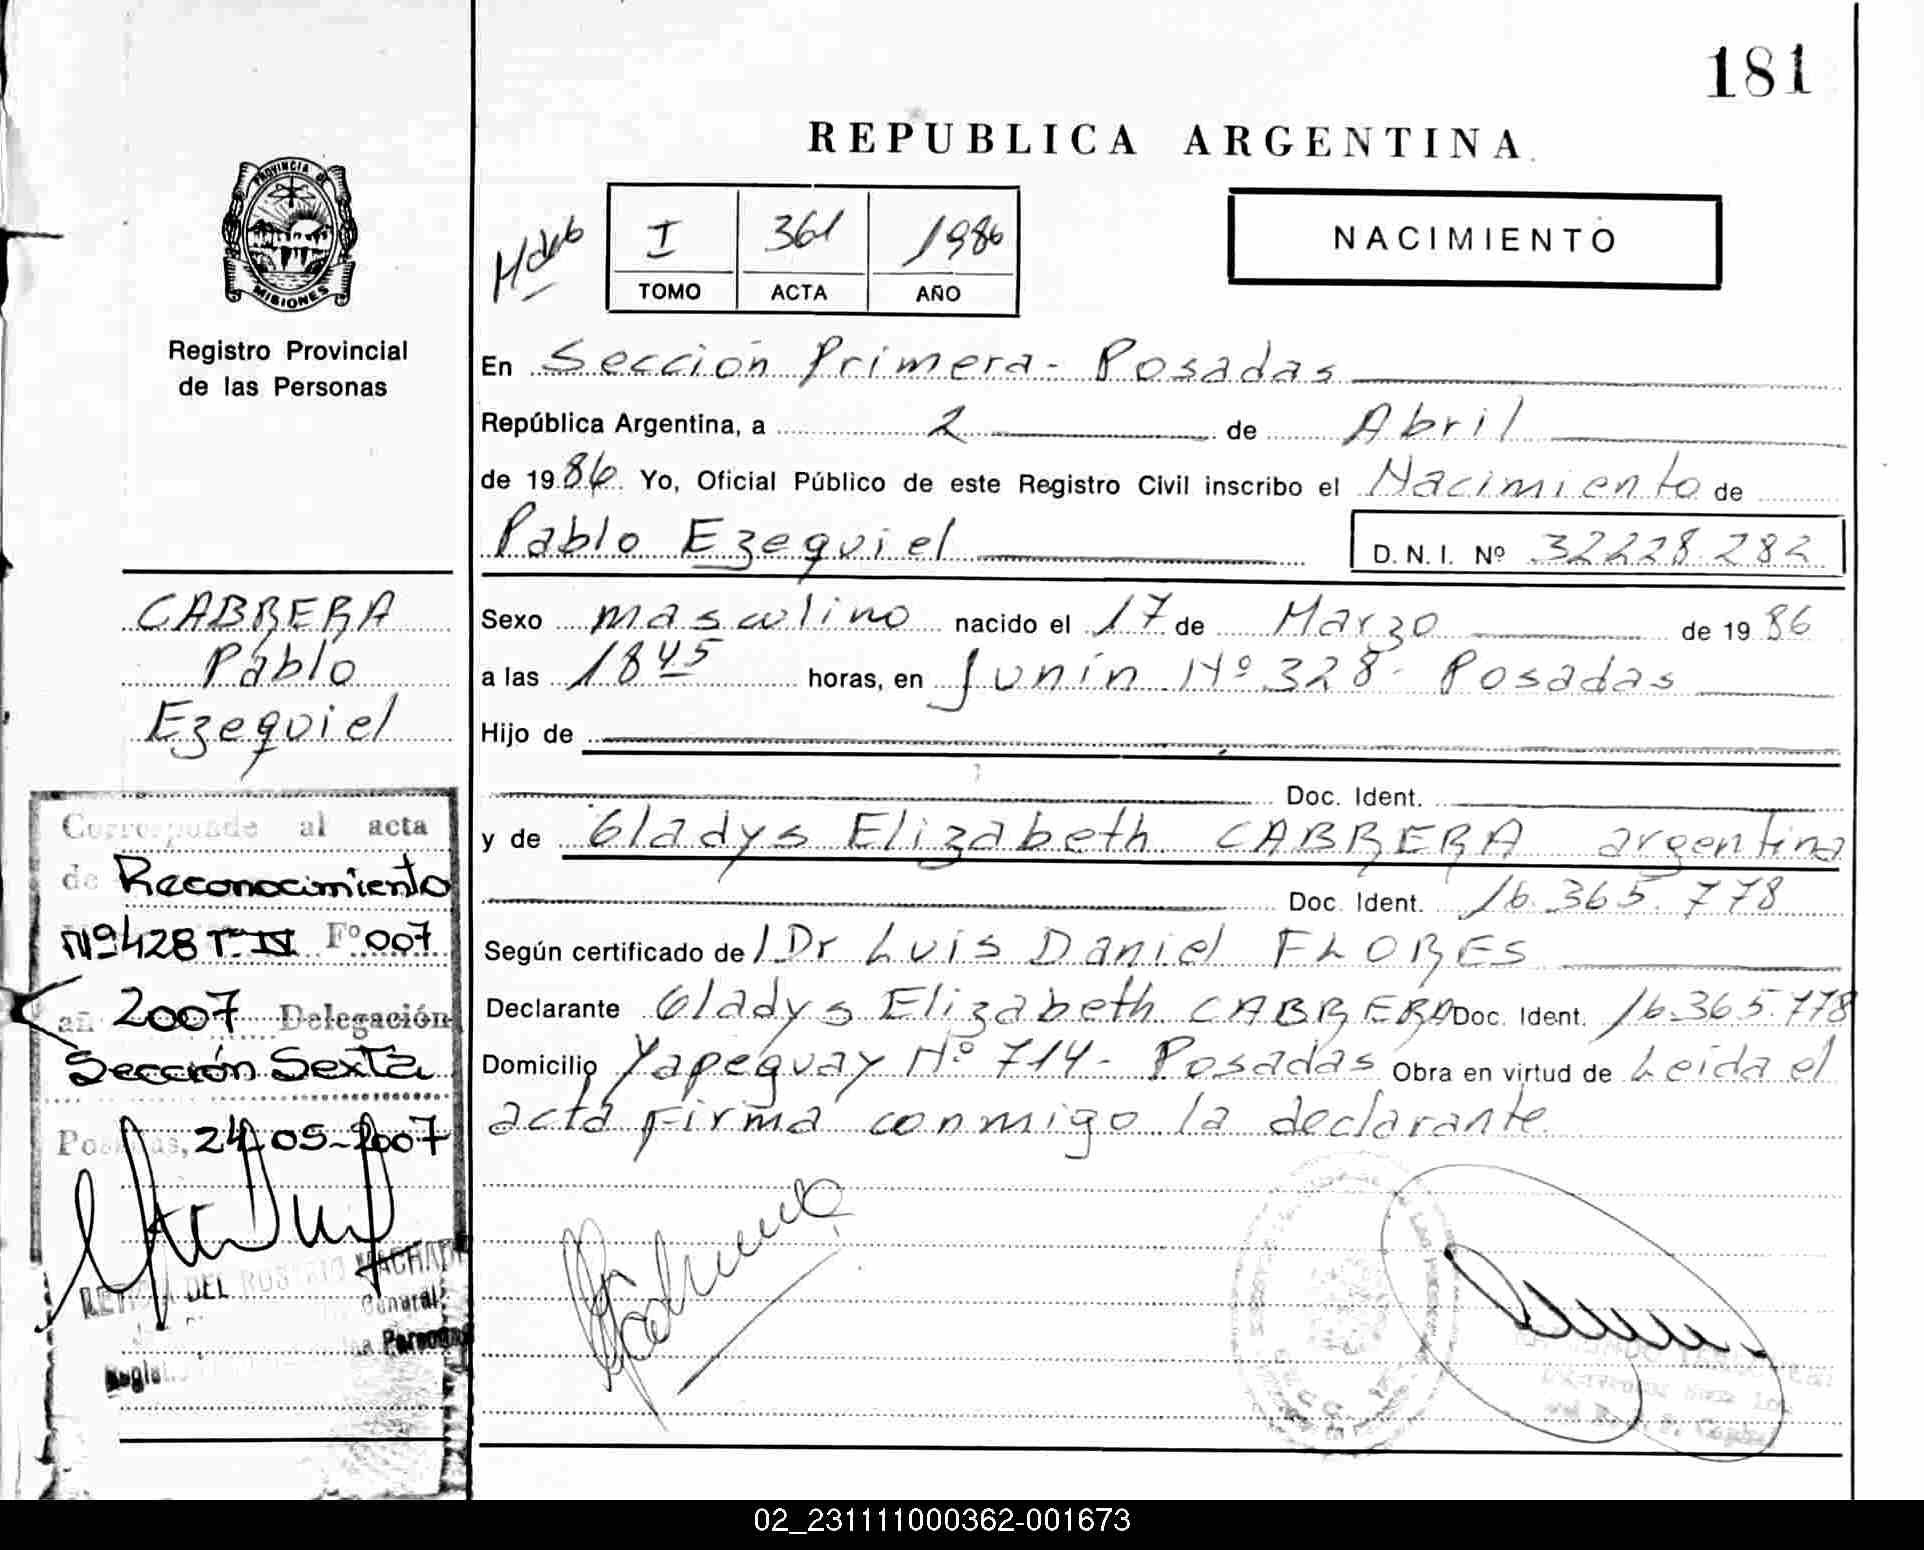 181
REPUBLICA ARGENTINA
PROVINCIA DE
MISIONES
Registro Provincial
de las Personas
I 361 1986
TOMO ACTA AÑO
NACIMIENTO
En Sección Primera - Posadas
República Argentina, a 2 de Abril
de 1986 Yo, Oficial Público de este Registro Civil inscribo el Nacimiento de
Pablo Ezequiel D.N.I. Nº 32228.282
CABRERA
Pablo
Ezequiel
Sexo masculino nacido el 17 de Marzo de 1986
a las 1845 horas, en Junín Nº 328 - Posadas
Hijo de
Doc. Ident.
y de Gladys Elizabeth CABRERA argentina
Doc. Ident. 16.365.778
Según certificado del Dr Luis Daniel FLORES
Declarante Gladys Elizabeth CABRERA Doc. Ident. 16.365.778
Domicilio Yapeguay Nº 714 - Posadas Obra en virtud de Leída el
acta firma conmigo la declarante
Corresponde al acta
de Reconocimiento
Nº 428 Tº IV Fº 007
añ 2007 Delegación
Sección Sexta
Posadas, 24-05-2007
DEL ROSARIO
General
02_231111000362-001673